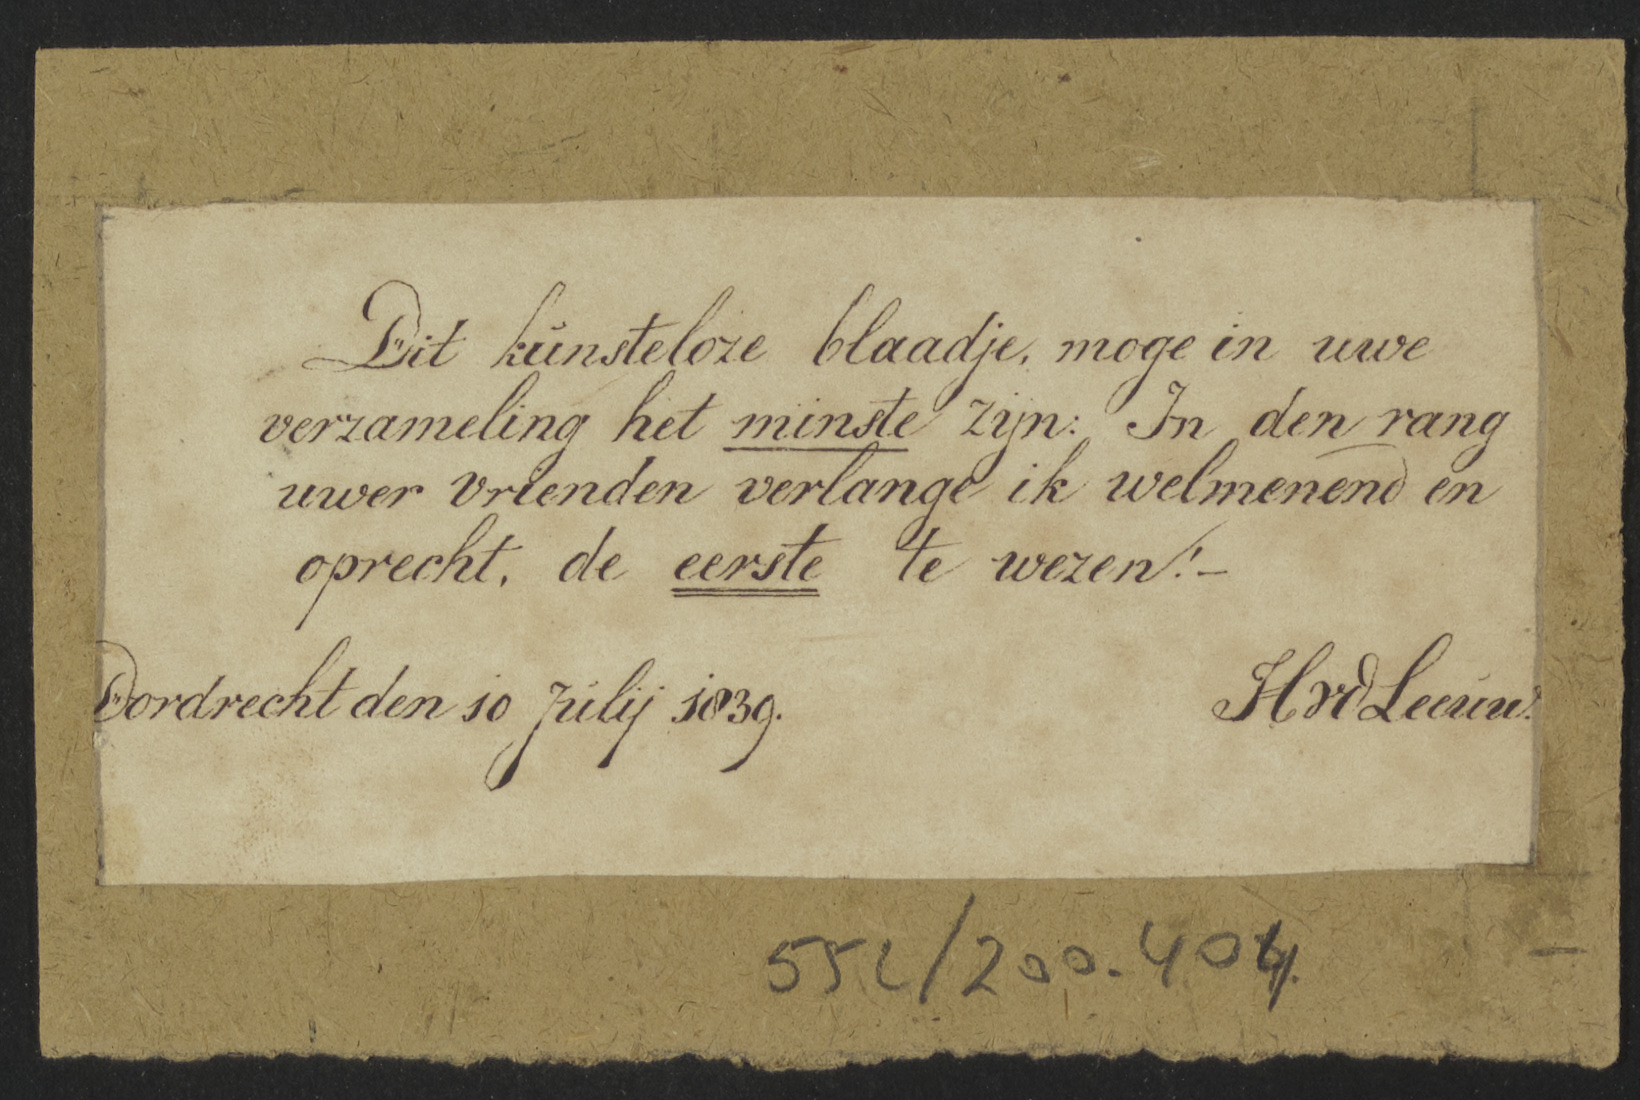 Dit kunsteloze blaadje, moge in uwe
verzameling het minste zijn: In den rang
uwer vrienden verlange ik welmenend en
oprecht, de eerste te wezen!-
Dordrecht den 10 Julij 1839.
H vd Leeuw.
552/200.404